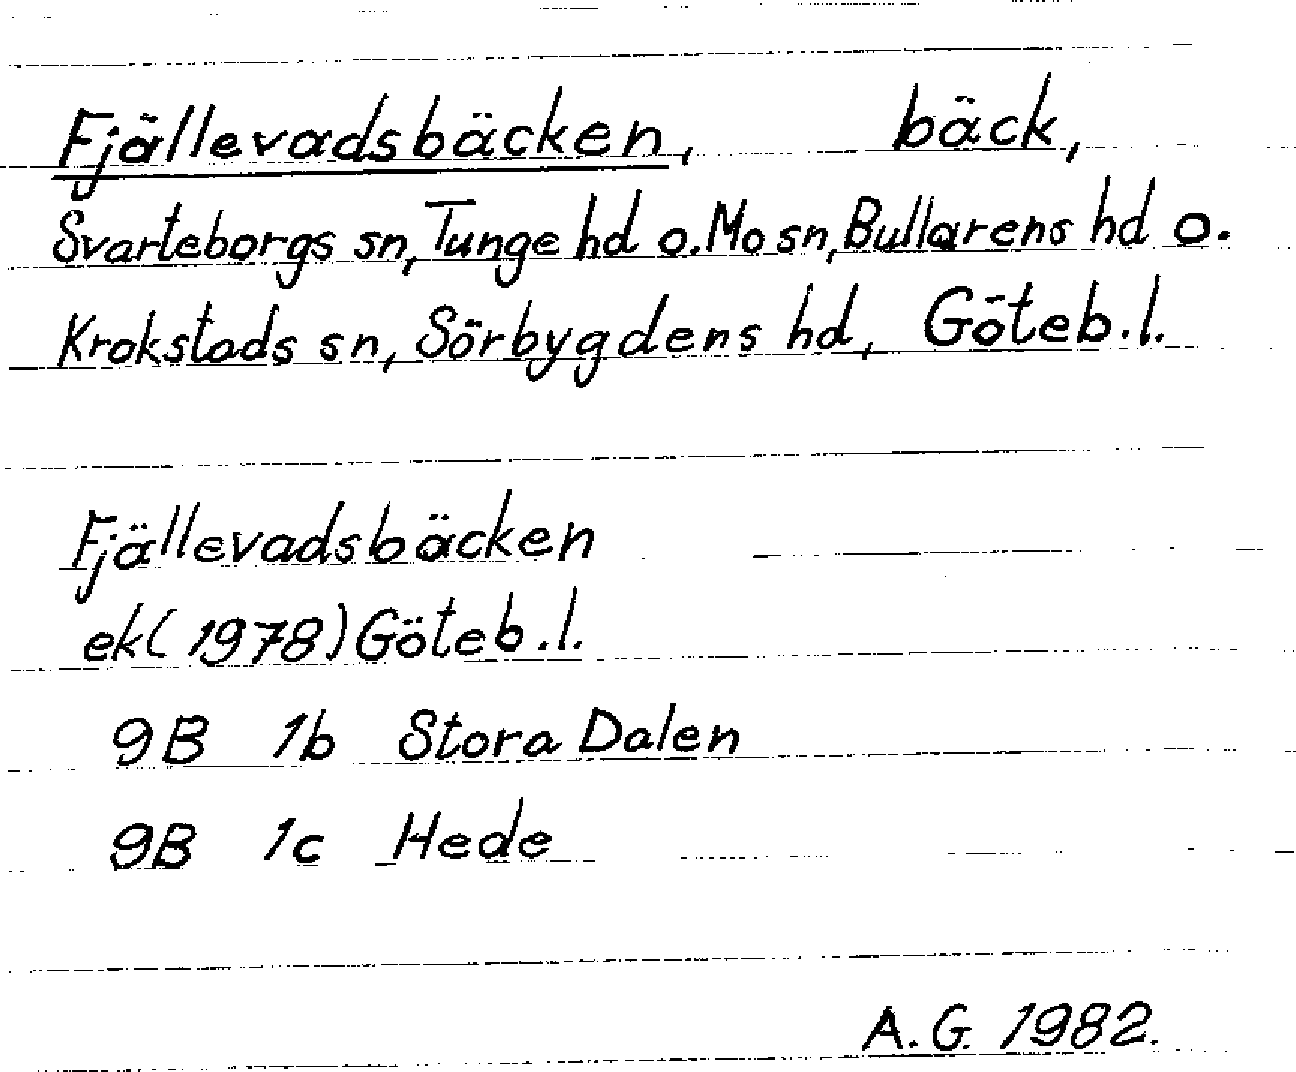 Fjällevadsbäcken, bäck,
Svarteborgs sn, Tunge hd o. Mo sn, Bullarens hd o.
Krokstads sn, Sörbygdens hd, Göteb.l.
Fjällevadsbäcken
ek(1978) Göteb.l.
9B 1b Stora Dalen
9B 1c Hede
A.G. 1982.